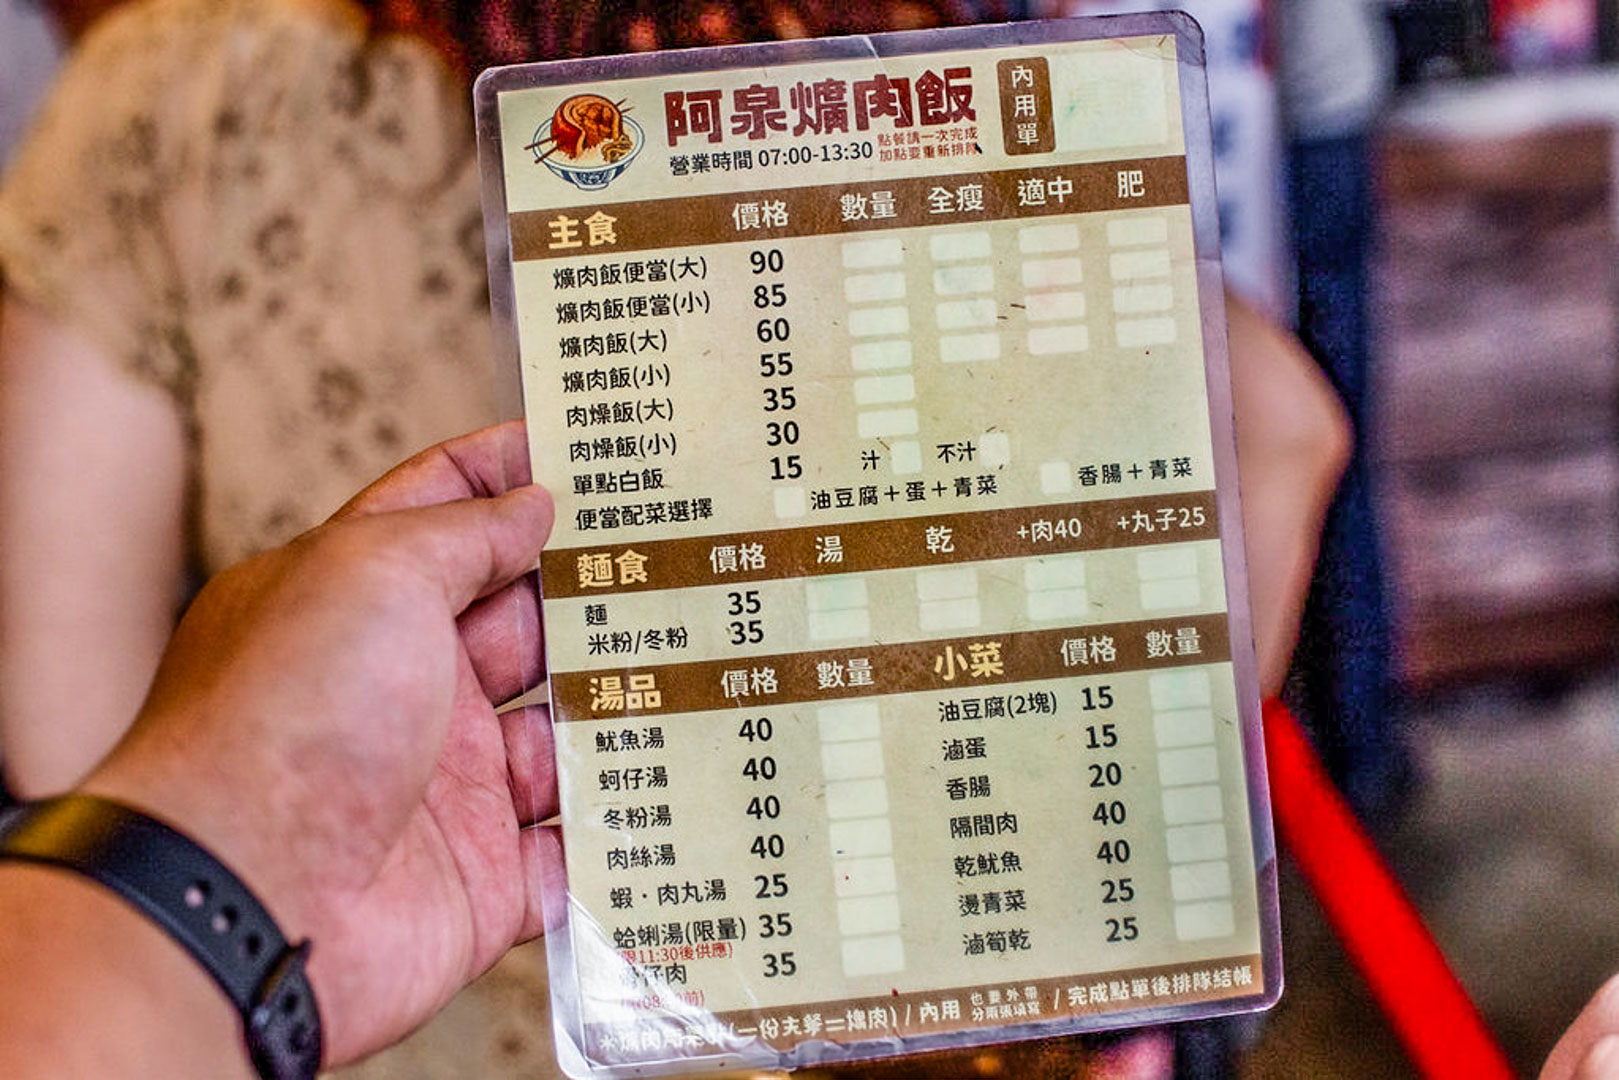 阿泉爌肉飯
內用單
營業時間 07:00-13:30
點餐請一次完成
加點要重新排隊
主食 價格 數量 全瘦 適中 肥
爌肉飯便當(大) 90
爌肉飯便當(小) 85
爌肉飯(大) 60
爌肉飯(小) 55
肉燥飯(大) 35
肉燥飯(小) 30
單點白飯 15 汁 不汁
便當配菜選擇 油豆腐+蛋+青菜 香腸+青菜
麵食 價格 湯 乾 +肉40 +丸子25
麵 35
米粉/冬粉 35
湯品 價格 數量
魷魚湯 40
蚵仔湯 40
冬粉湯 40
肉絲湯 40
蝦·肉丸湯 25
蛤蜊湯(限量) 35
11:30後供應)
仔肉 35
小菜 價格 數量
油豆腐(2塊) 15
滷蛋 15
香腸 20
隔間肉 40
乾魷魚 40
燙青菜 25
滷筍乾 25
/ 內用 也要外帶 分兩張填寫 / 完成點單後排隊結帳